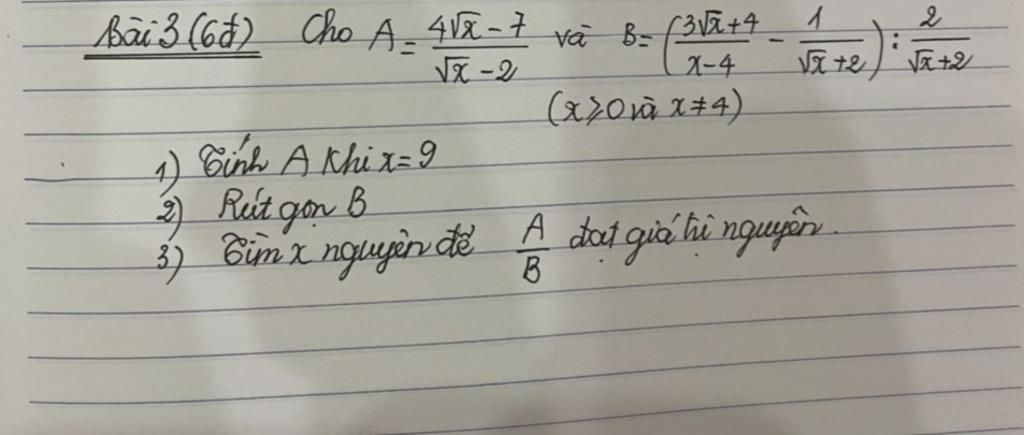 Bài 3 (6đ) Cho A = \frac{4\sqrt{x} - 7}{\sqrt{x} - 2} và B = \left(\frac{3\sqrt{x} + 4}{x - 4} - \frac{1}{\sqrt{x} + 2}\right) : \frac{2}{\sqrt{x} + 2}
(x ⩾ 0 và x ≠ 4)
1) Tính A khi x = 9
2) Rút gọn B
3) Tìm x nguyên để \frac{A}{B} đạt giá trị nguyên.